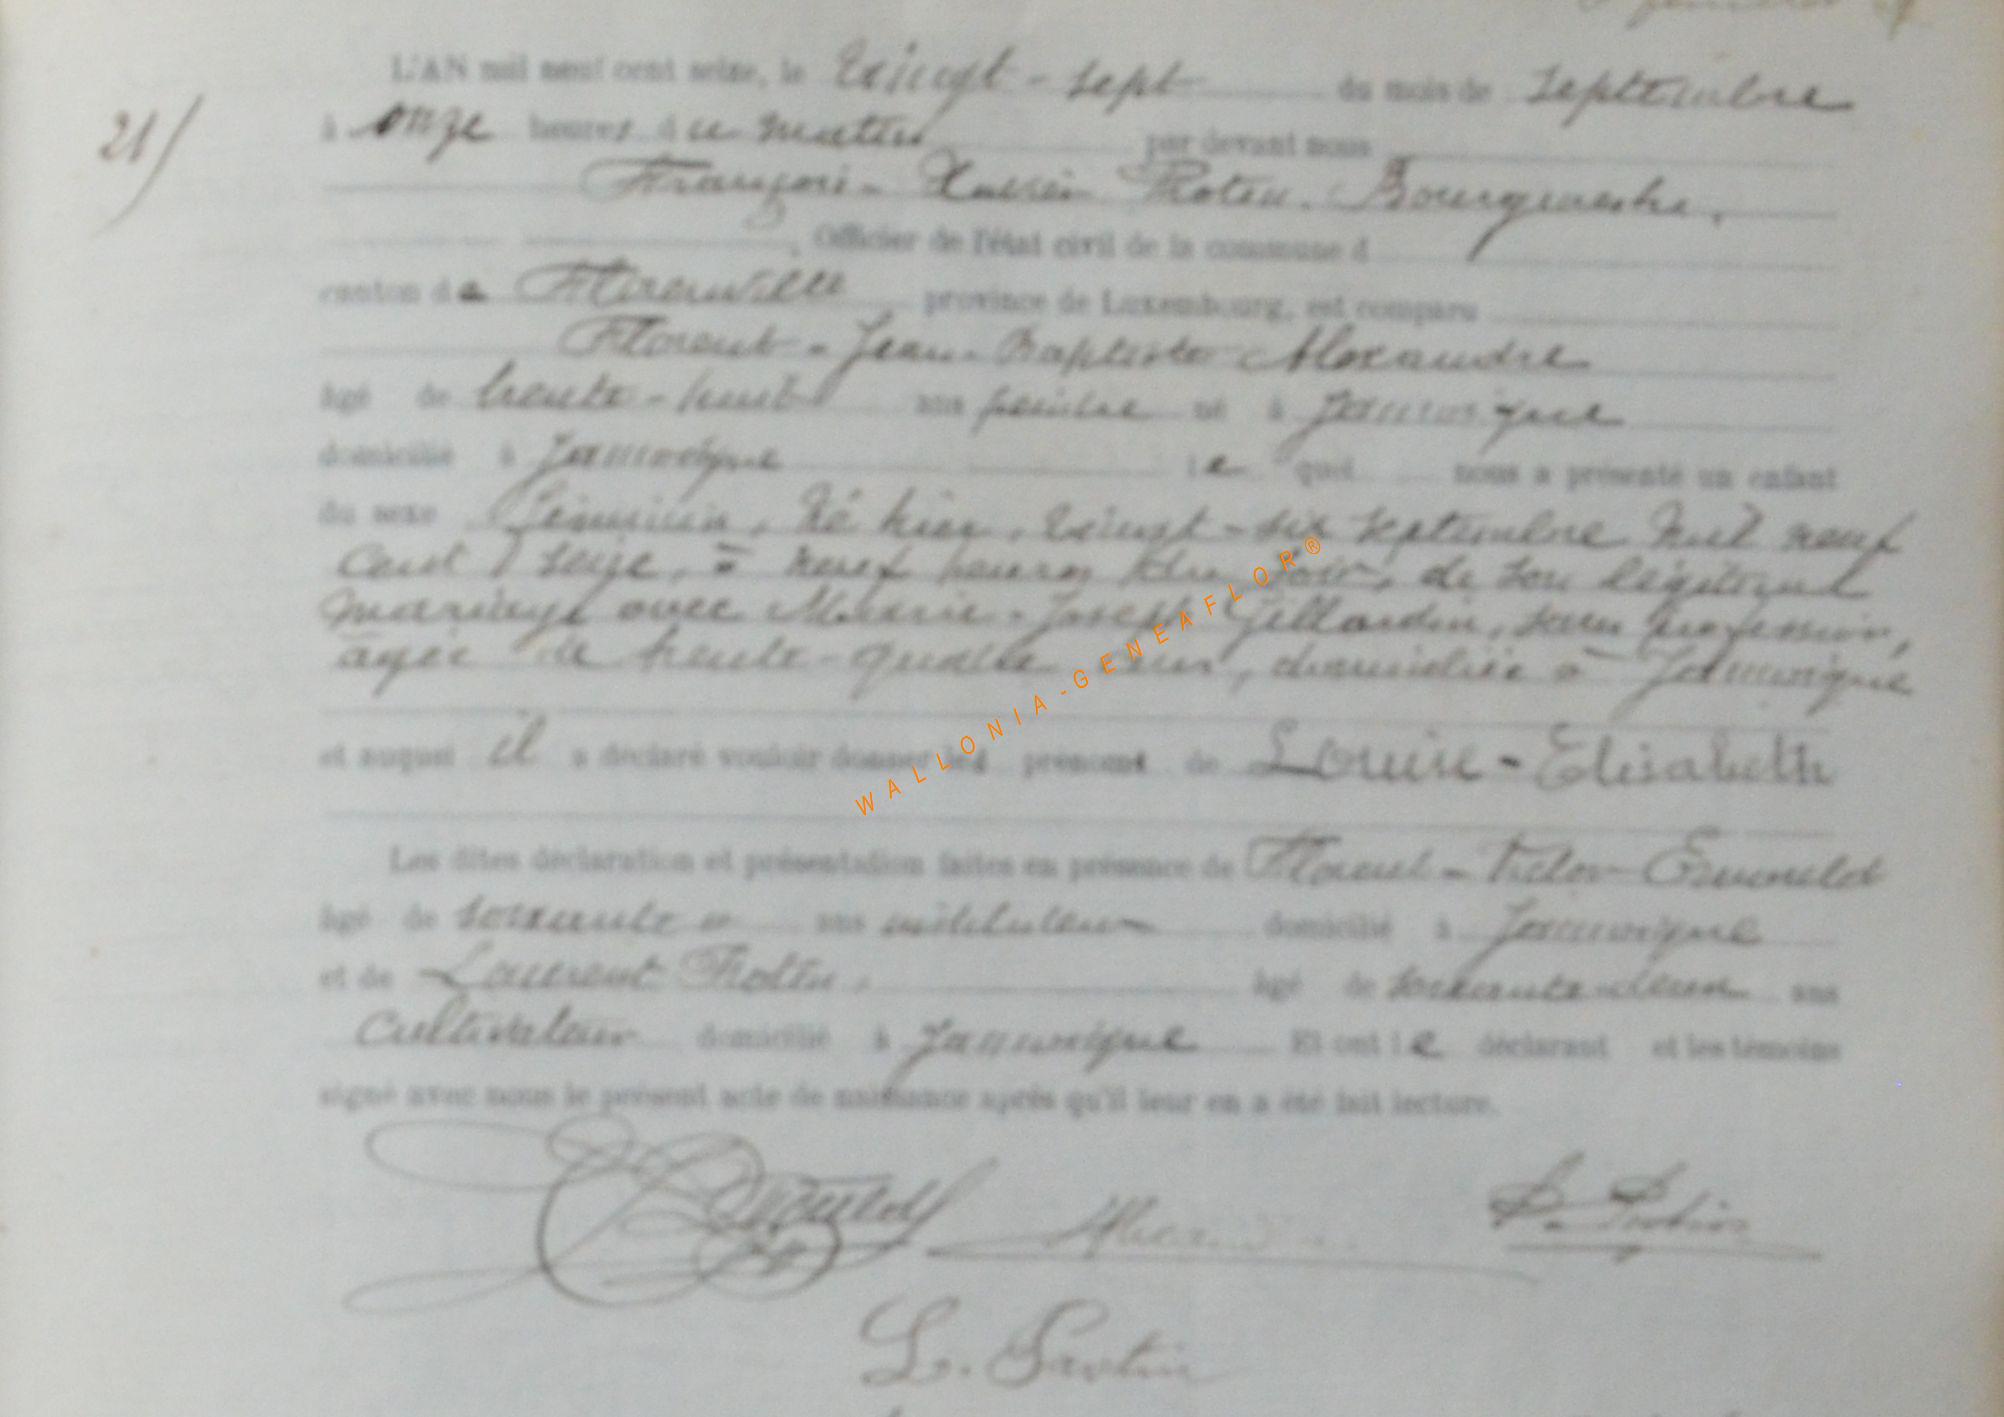 21/
L'AN mil neuf cent seize, le vingt-sept du mois de septembre
à onze heures du matin par devant nous
François-Xavier Bourgmestre,
, Officier de l'état civil de la commune d
canton de Florenville province de Luxembourg, est comparu
Florent-Jean-Baptiste Alexandre
âgé de trente-huit ans peintre né à Jamoigne
domicilié à Jamoigne le quel nous a présenté un enfant
du sexe féminin, né hier, vingt-six septembre mil neuf
cent seize, à neuf heures du soir, de son légitime
mariage avec Marie-Joseph Gillardin, sans profession,
âgée de trente-quatre ans, domiciliée à Jamoigne
et auquel il a déclaré vouloir donner les prénoms de Louise-Elisabeth
Les dites déclaration et présentation faites en présence de Florent-Victor
âgé de soixante ans instituteur domicilié à Jamoigne
et de Laurent âgé de soixante-deux ans
cultivateur domicilié à Jamoigne Et ont le déclarant et les témoins
signé avec nous le présent acte de naissance après qu'il leur en a été fait lecture.
WALLONIA-GENEAFLOR®